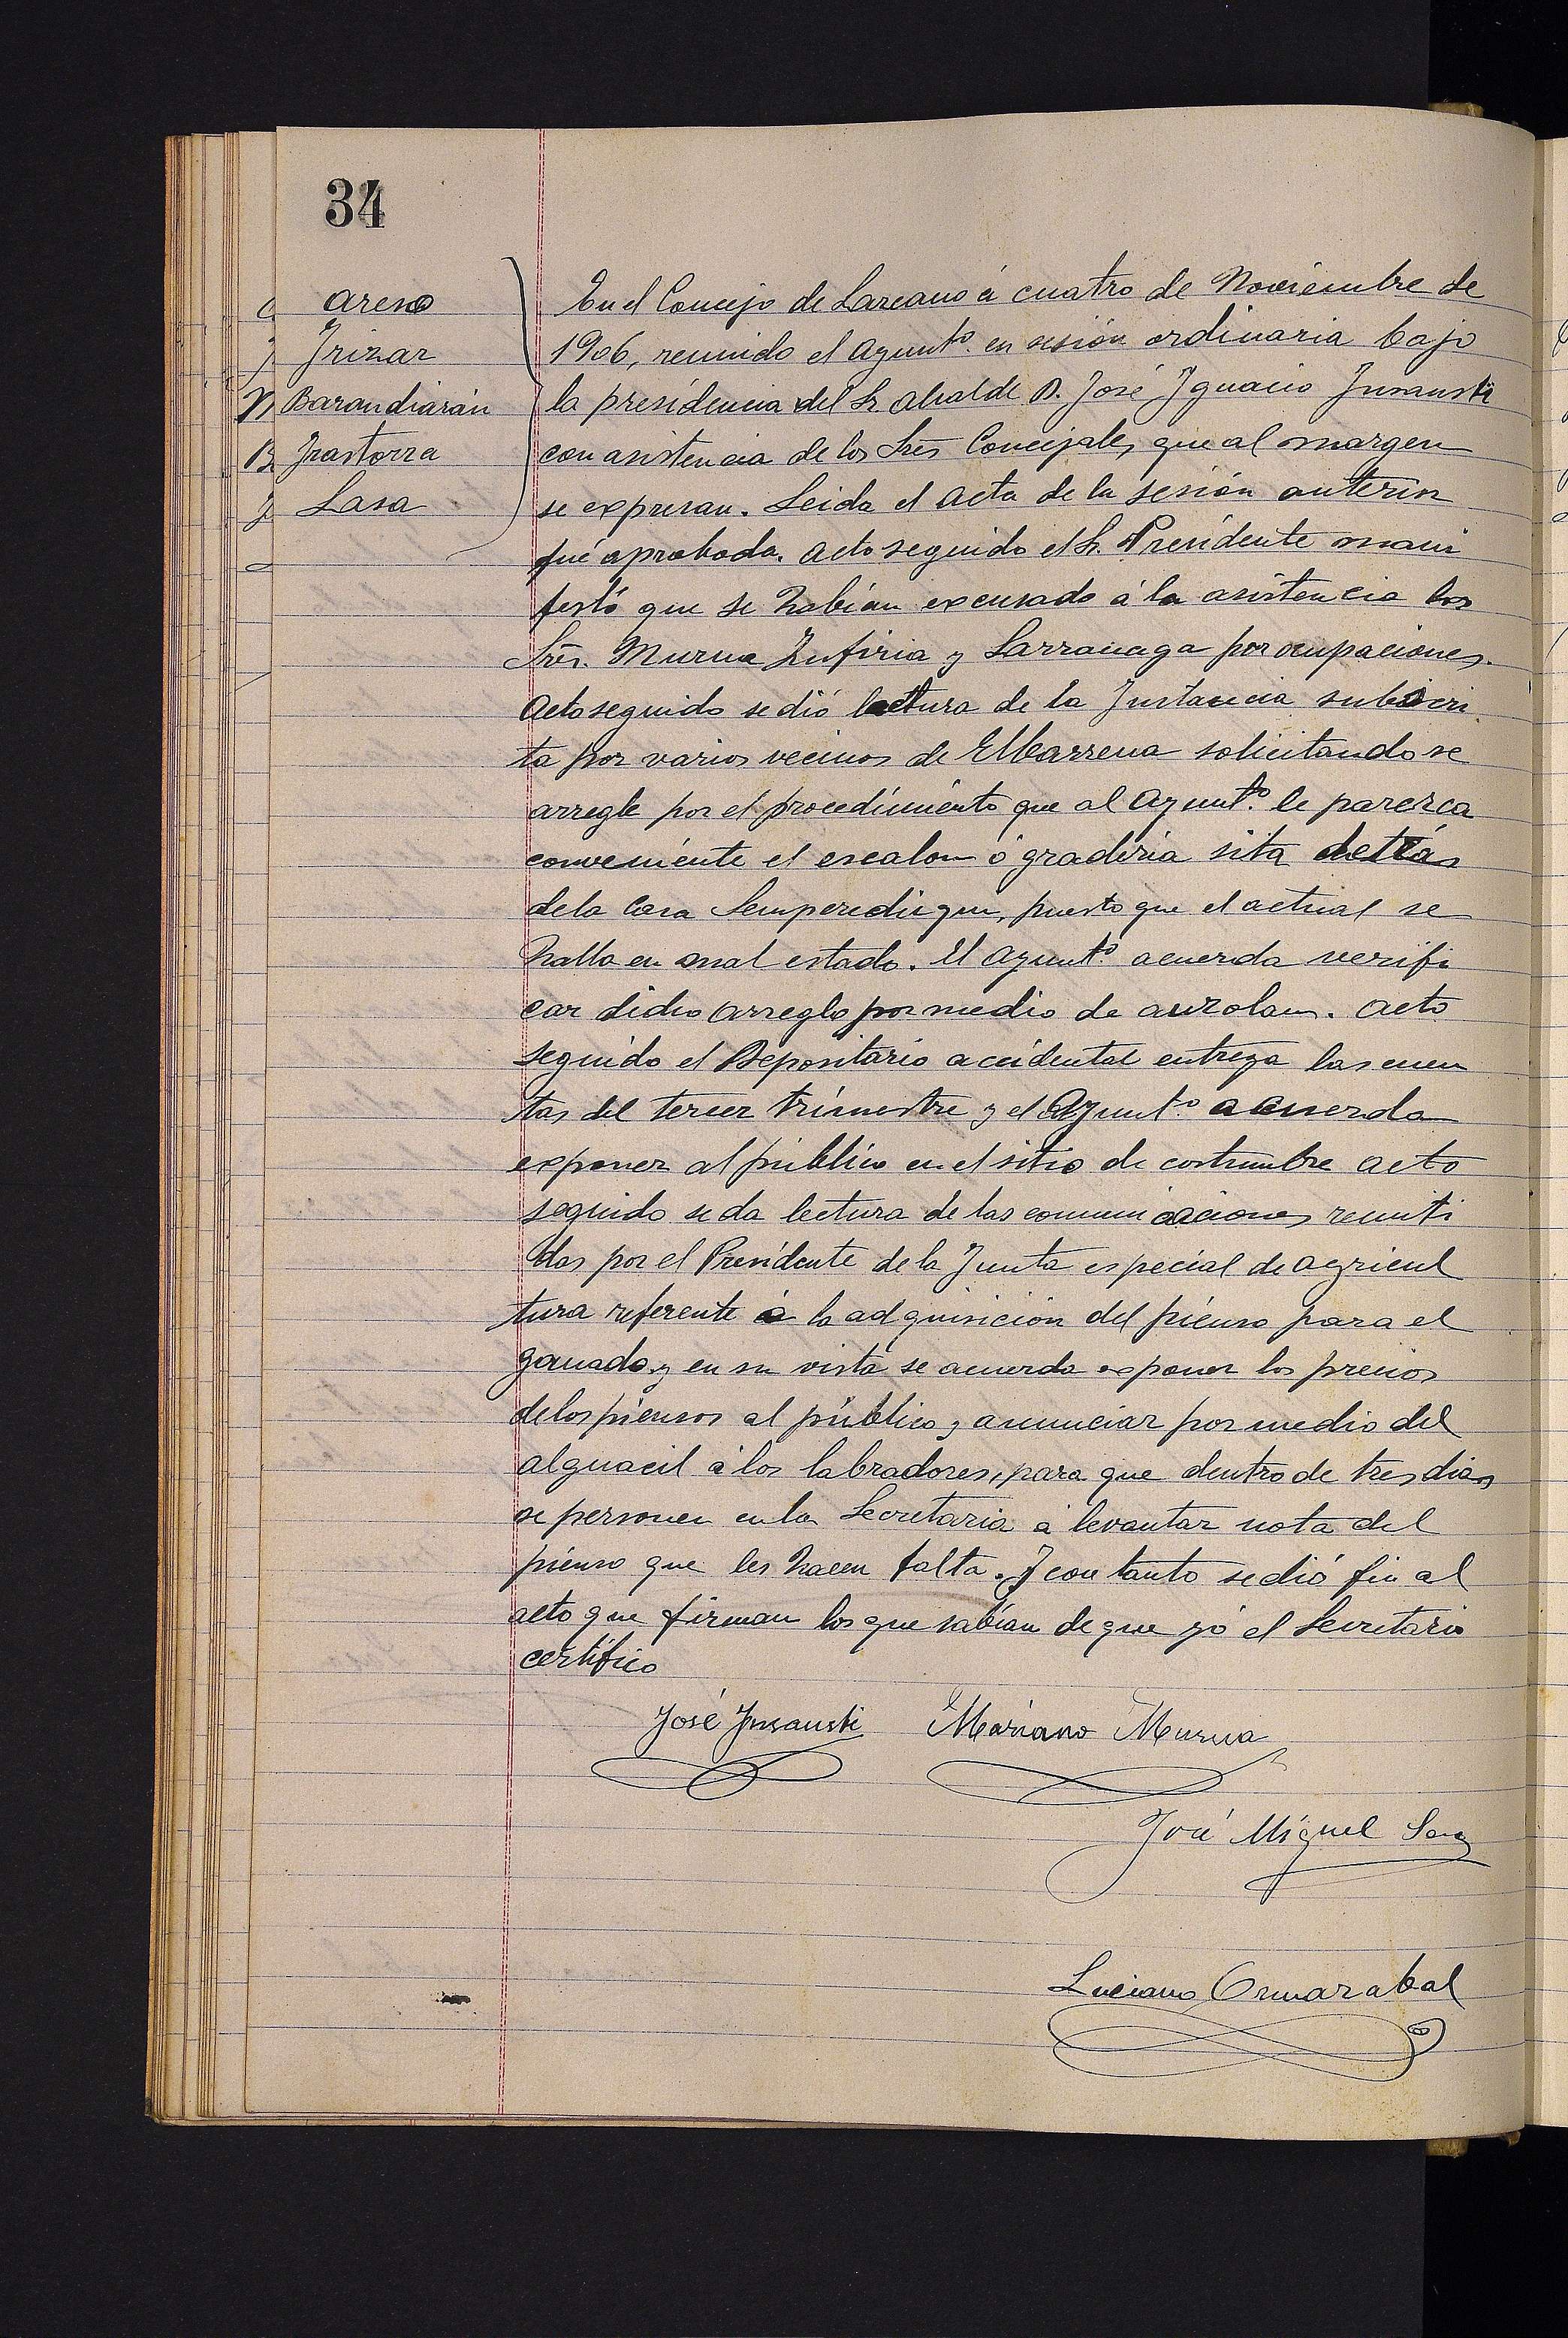 34
Areno
Irizar
Barandiarán
Irastorza
Lasa
En el Concejo de Lazcano á cuatro de Noviembre de
1906, reunido el Ayunt.º en sesión ordinaria bajo
la presidencia del Sr Alcalde D. José Ignacio Insausti
con asistencia de los Sres Concejales que al margen
se expresan. Leida el acta de la sesión anterior
fué aprobada. Acto seguido el Sr. Presidente mani
festó que se habían excusado á la asistencia los
Sres. Murua Zufiria y Larrañaga por ocupaciones.
Acto seguido se dió lectura de la Instancia subscri
ta por varios vecinos de Elbarrena solicitando se
arregle por el procedimiento que al Ayunt.º le parezca
conveniente el escalon ó gradiria sita detrás
de la Casa , puesto que el actual se
halla en mal estado. El Ayunt.º acuerda verifi
car dicho arreglo por medio de auzolan. Acto
seguido el Depositario accidental entrega las cuen
tas del tercer trimestre y el Ayunt.º acuerda
exponer al público en el sitio de costumbre acto
seguido se da lectura de las comunicaciones remiti
das por el Presidente de la Junta especial de agricul
tura referente á la adquisición del pienso para el
ganado y en su vista se acuerda exponer los precios
de los piensos al público y anunciar por medio del
alguacil á los labradores, para que dentro de tres dias
se personen en la Secretaria á levantar nota del
pienso que les hacen falta. Y con tanto se dió fin al
acto que firman los que sabían de que yó el Secretario
certifico
José Insausti Mariano Murua
José Miguel
Luciano Ormazabal